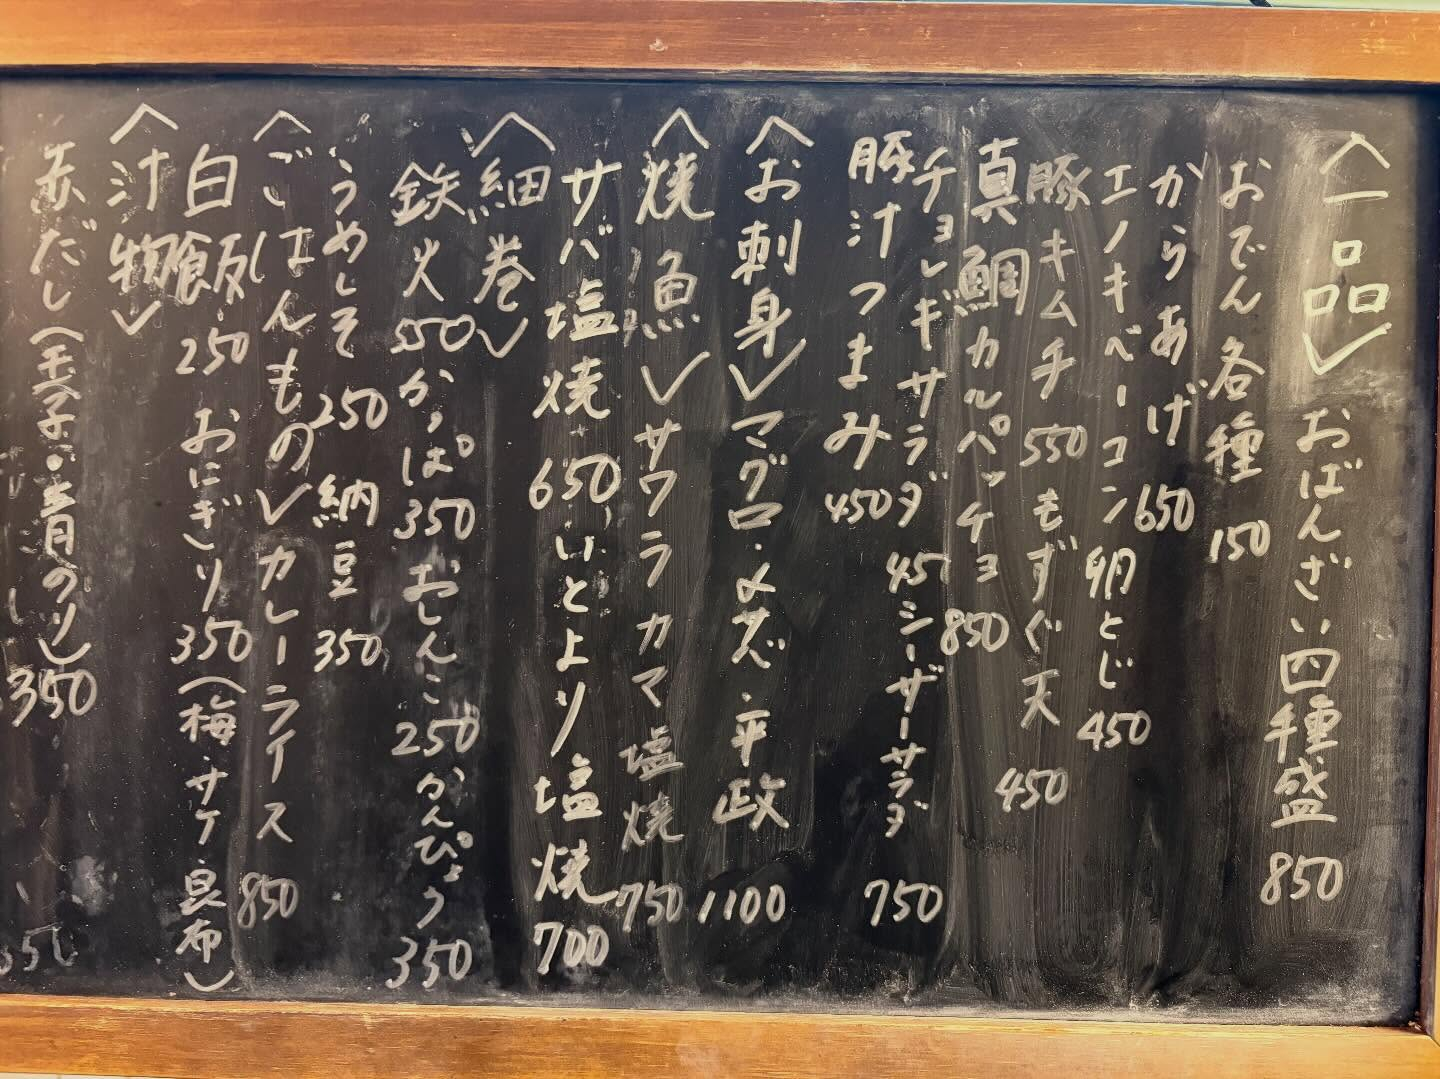 〈一品〉おばんざい四種盛 850
おでん各種 150
からあげ 650
エノキベーコン 卵とじ 450
豚キムチ 550 もずく天 450
真鯛カルパッチョ 850
チョレギサラダ 45 シーザーサラダ 750
豚汁つまみ 450
〈お刺身〉マグロ・〆サバ・平政 1100
〈焼魚〉サワラカマ塩焼 750
サバ塩焼 650 いとより塩焼 700
〈細巻〉
鉄火 550 かっぱ 350 おしんこ 250 かんぴょう 350
うめしそ 250 納豆 350
〈ごはんもの〉カレーライス 850
白飯 250 おにぎり 350 (梅・サケ・昆布)
〈汁物〉
赤だし(玉子・青のり) 350